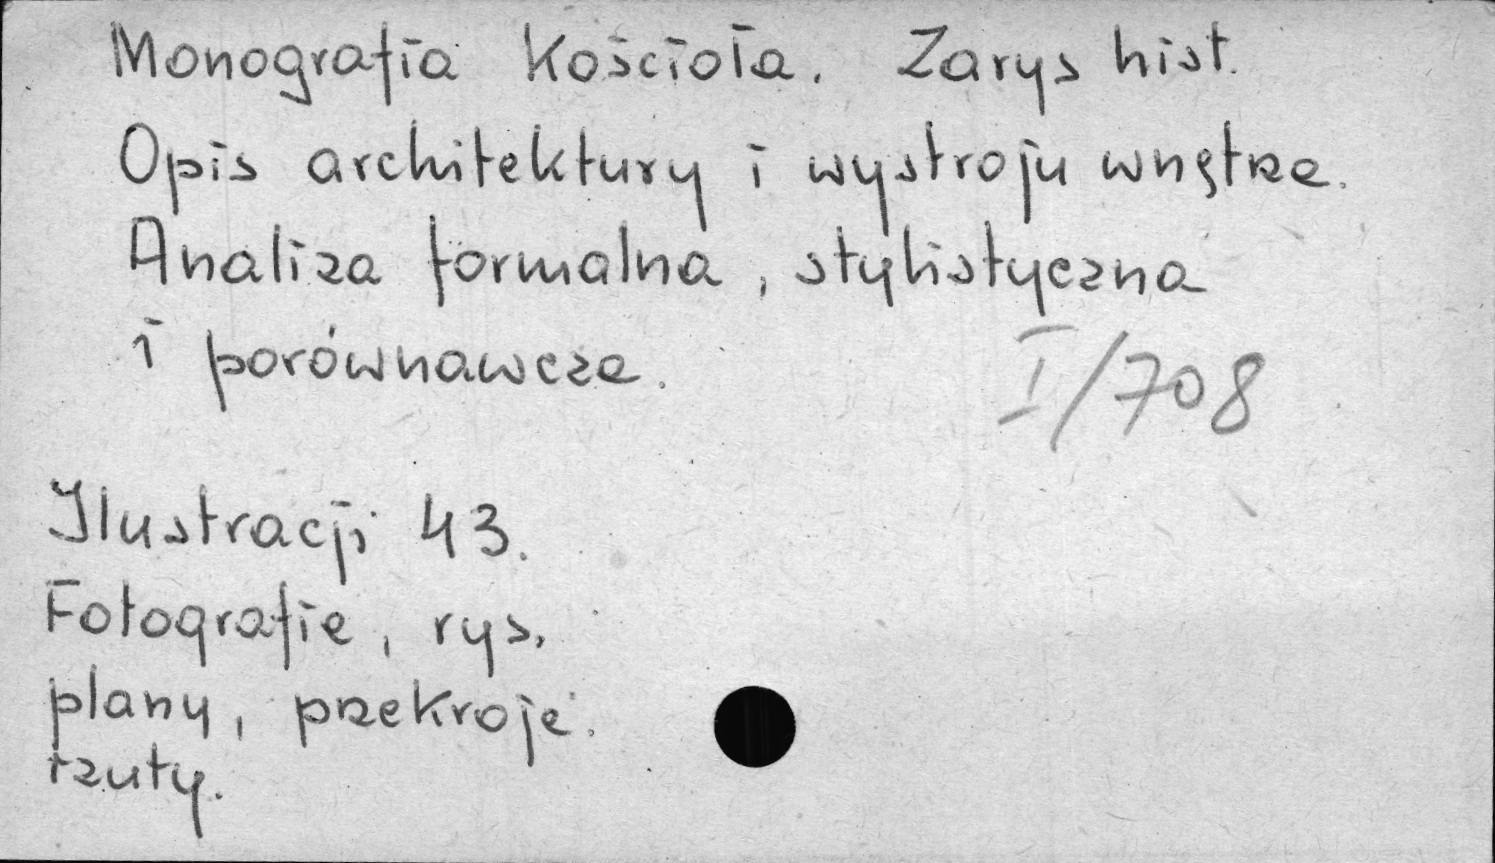 Monografia Kościoła. Zarys hist.
Opis architektury i wystroju wnętrza.
Analiza formalna, stylistyczna
i porównawcza.
I/708
Ilustracji 43.
Fotografie, rys.
plany, przekroje.
rzuty.